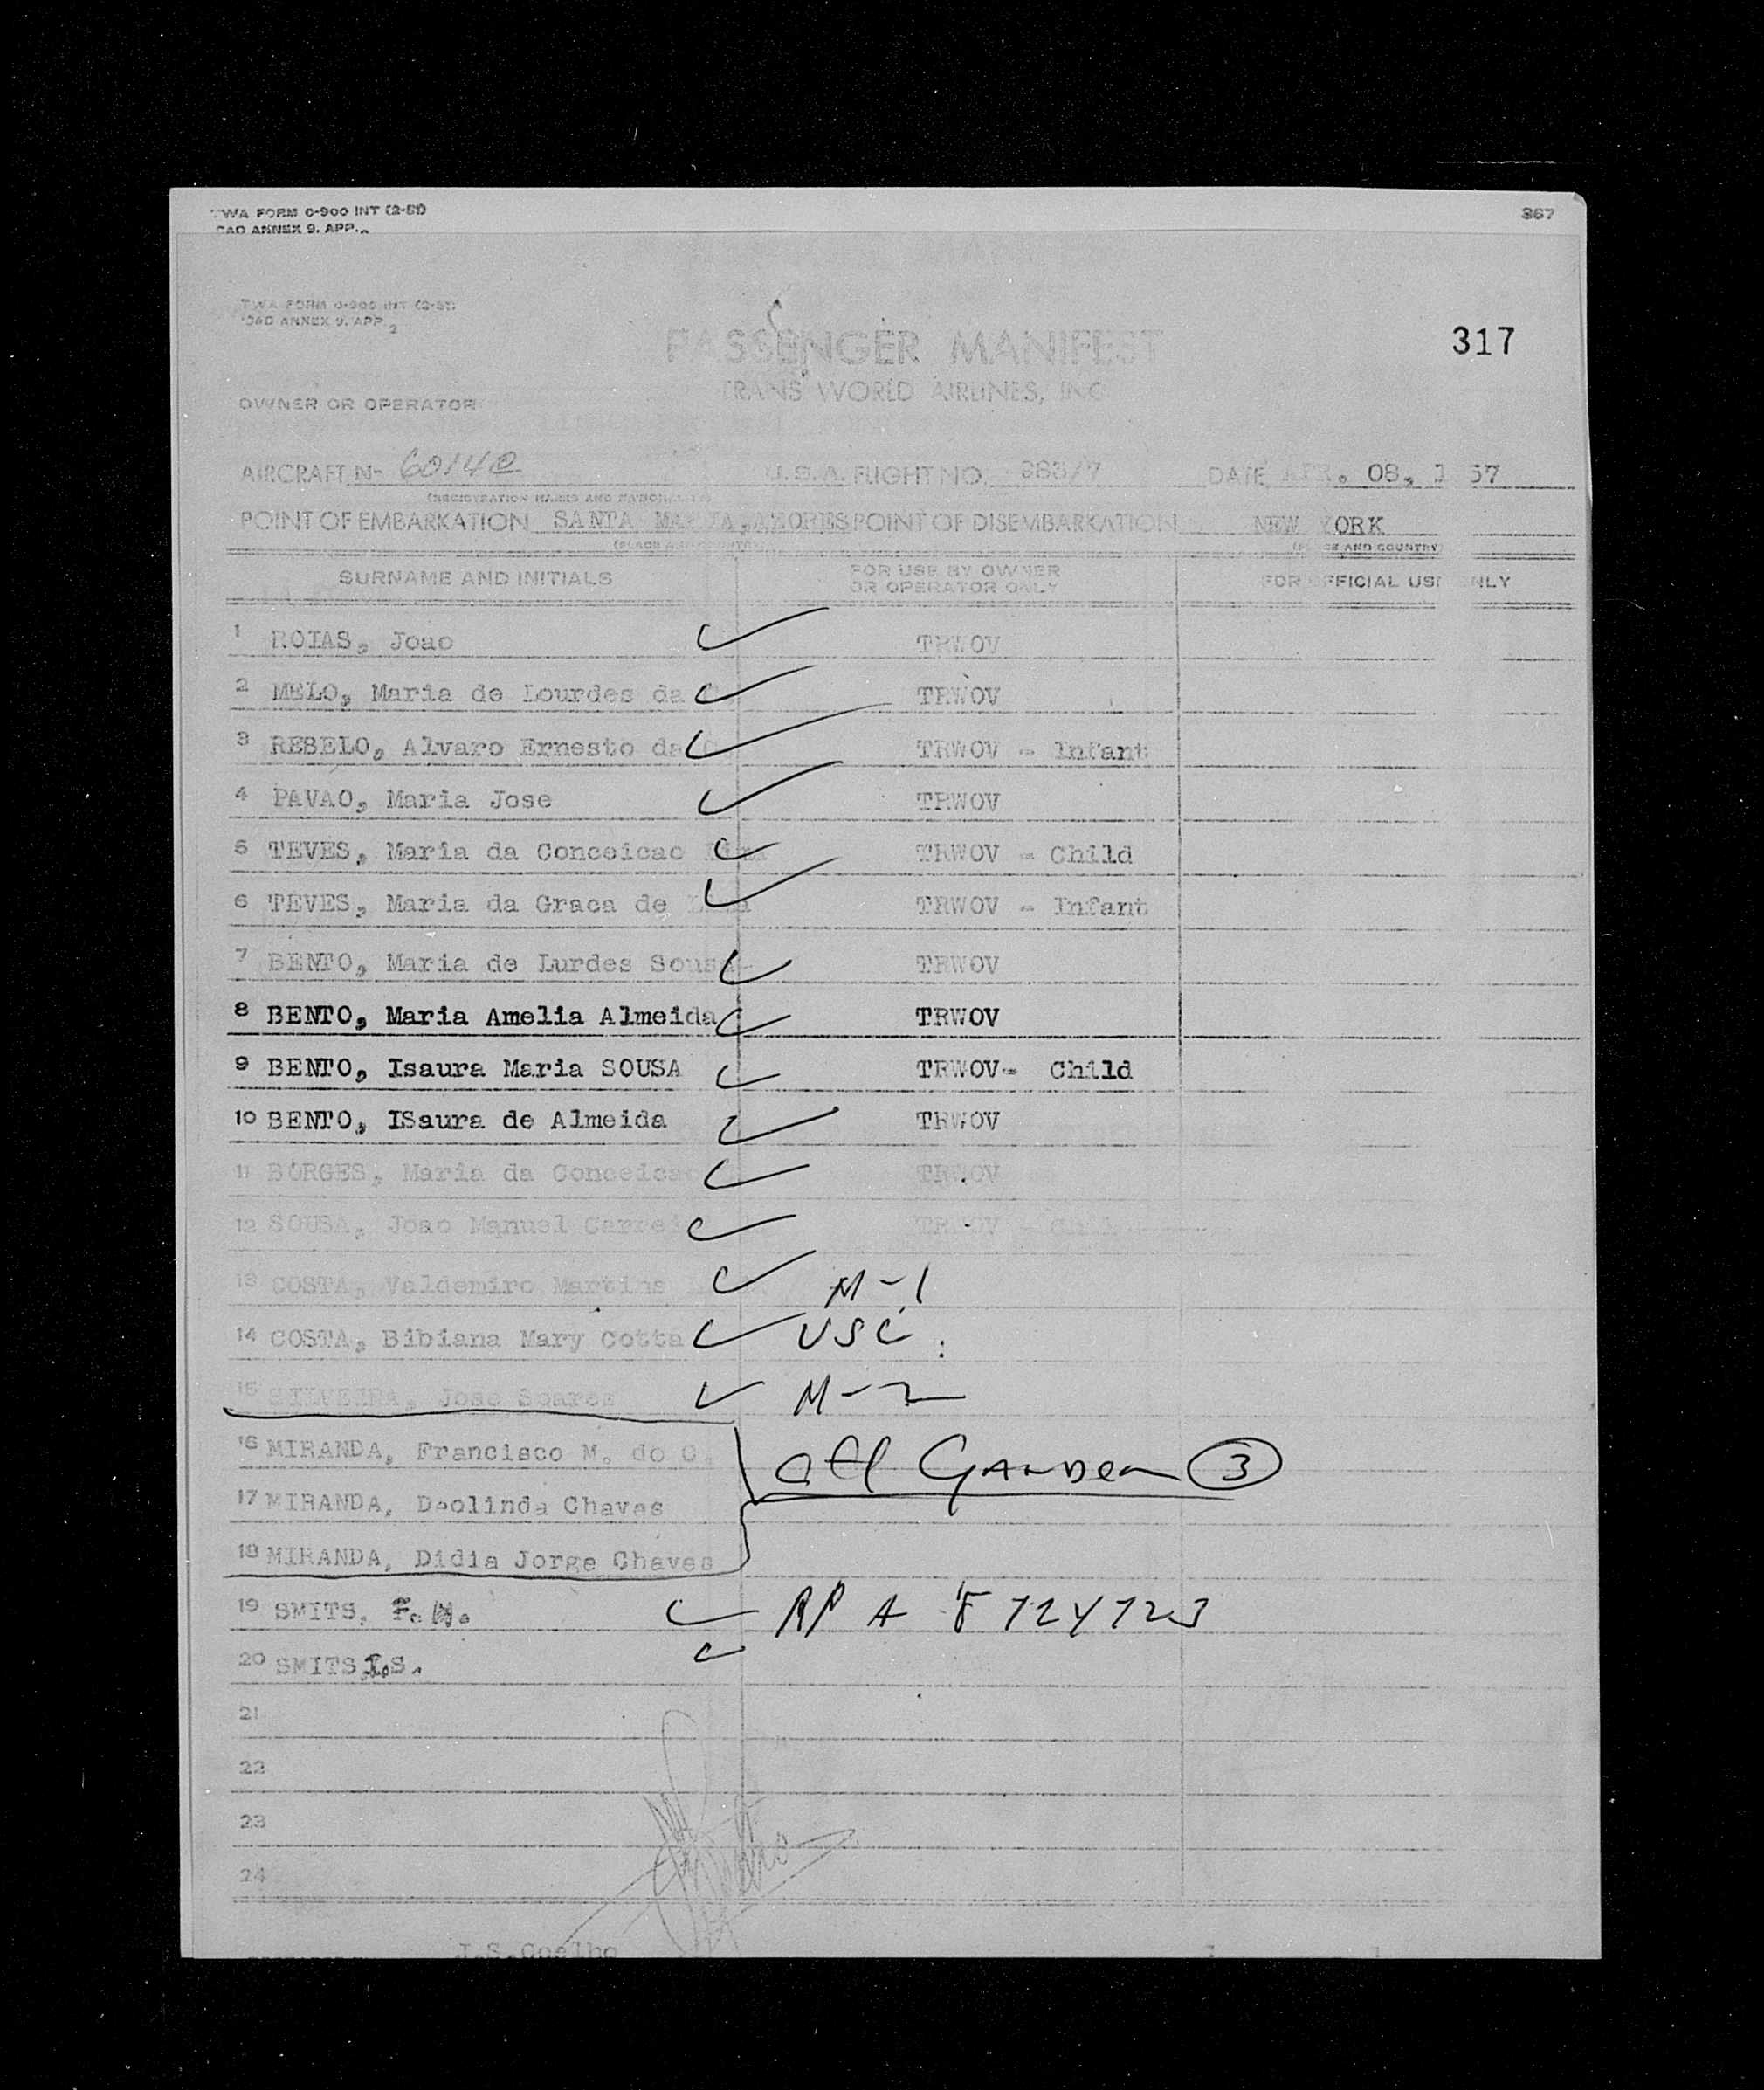 TWA FORM 0-900 INT (2-51)
CAO ANNEX 9. APP.
367
TWA FORM 0-900 INT (2-51)
CAO ANNEX 9. APP. 2
PASSENGER MANIFEST
317
TRANS WORLD AIRLINES, INC
OWNER OR OPERATOR
AIRCRAFT No 6014C U.S.A. FLIGHT NO. 963/7 DATE APR. 08, 1 57
(REGISTRATION MARKS AND NATIONALITY)
POINT OF EMBARKATION SANTA MARIA, AZORES POINT OF DISEMBARKATION NEW YORK
(PLACE AND COUNTRY) (PLACE AND COUNTRY)
SURNAME AND INITIALS FOR USE BY OWNER OR OPERATOR ONLY FOR OFFICIAL USE ONLY
1 ROIAS, Joao TRWOV
2 MELO, Maria de Lourdes da TRWOV
3 REBELO, Alvaro Ernesto da TRWOV - Infant
4 PAVAO, Maria Jose TRWOV
5 TEVES, Maria da Conceicao TRWOV - Child
6 TEVES, Maria da Graca de TRWOV - Infant
7 BENTO, Maria de Lurdes Sousa TRWOV
8 BENTO, Maria Amelia Almeida TRWOV
9 BENTO, Isaura Maria SOUSA TRWOV- Child
10 BENTO, ISaura de Almeida TRWOV
11 BORGES, Maria da Conceicao TRWOV
12 SOUSA, Joao Manuel TRWOV - Child
13 COSTA, Valdemiro Martins M-1
14 COSTA, Bibiana Mary Cotta USC
15 SILVEIRA, Jose Soares M-2
16 MIRANDA, Francisco M. do C.
17 MIRANDA, Deolinda Chaves
18 MIRANDA, Didia Jorge Chaves
off Gander 3
19 SMITS, F. H. RP A 8 724723
20 SMITS,I.S.
21
22
23
24
J.S.Coelho